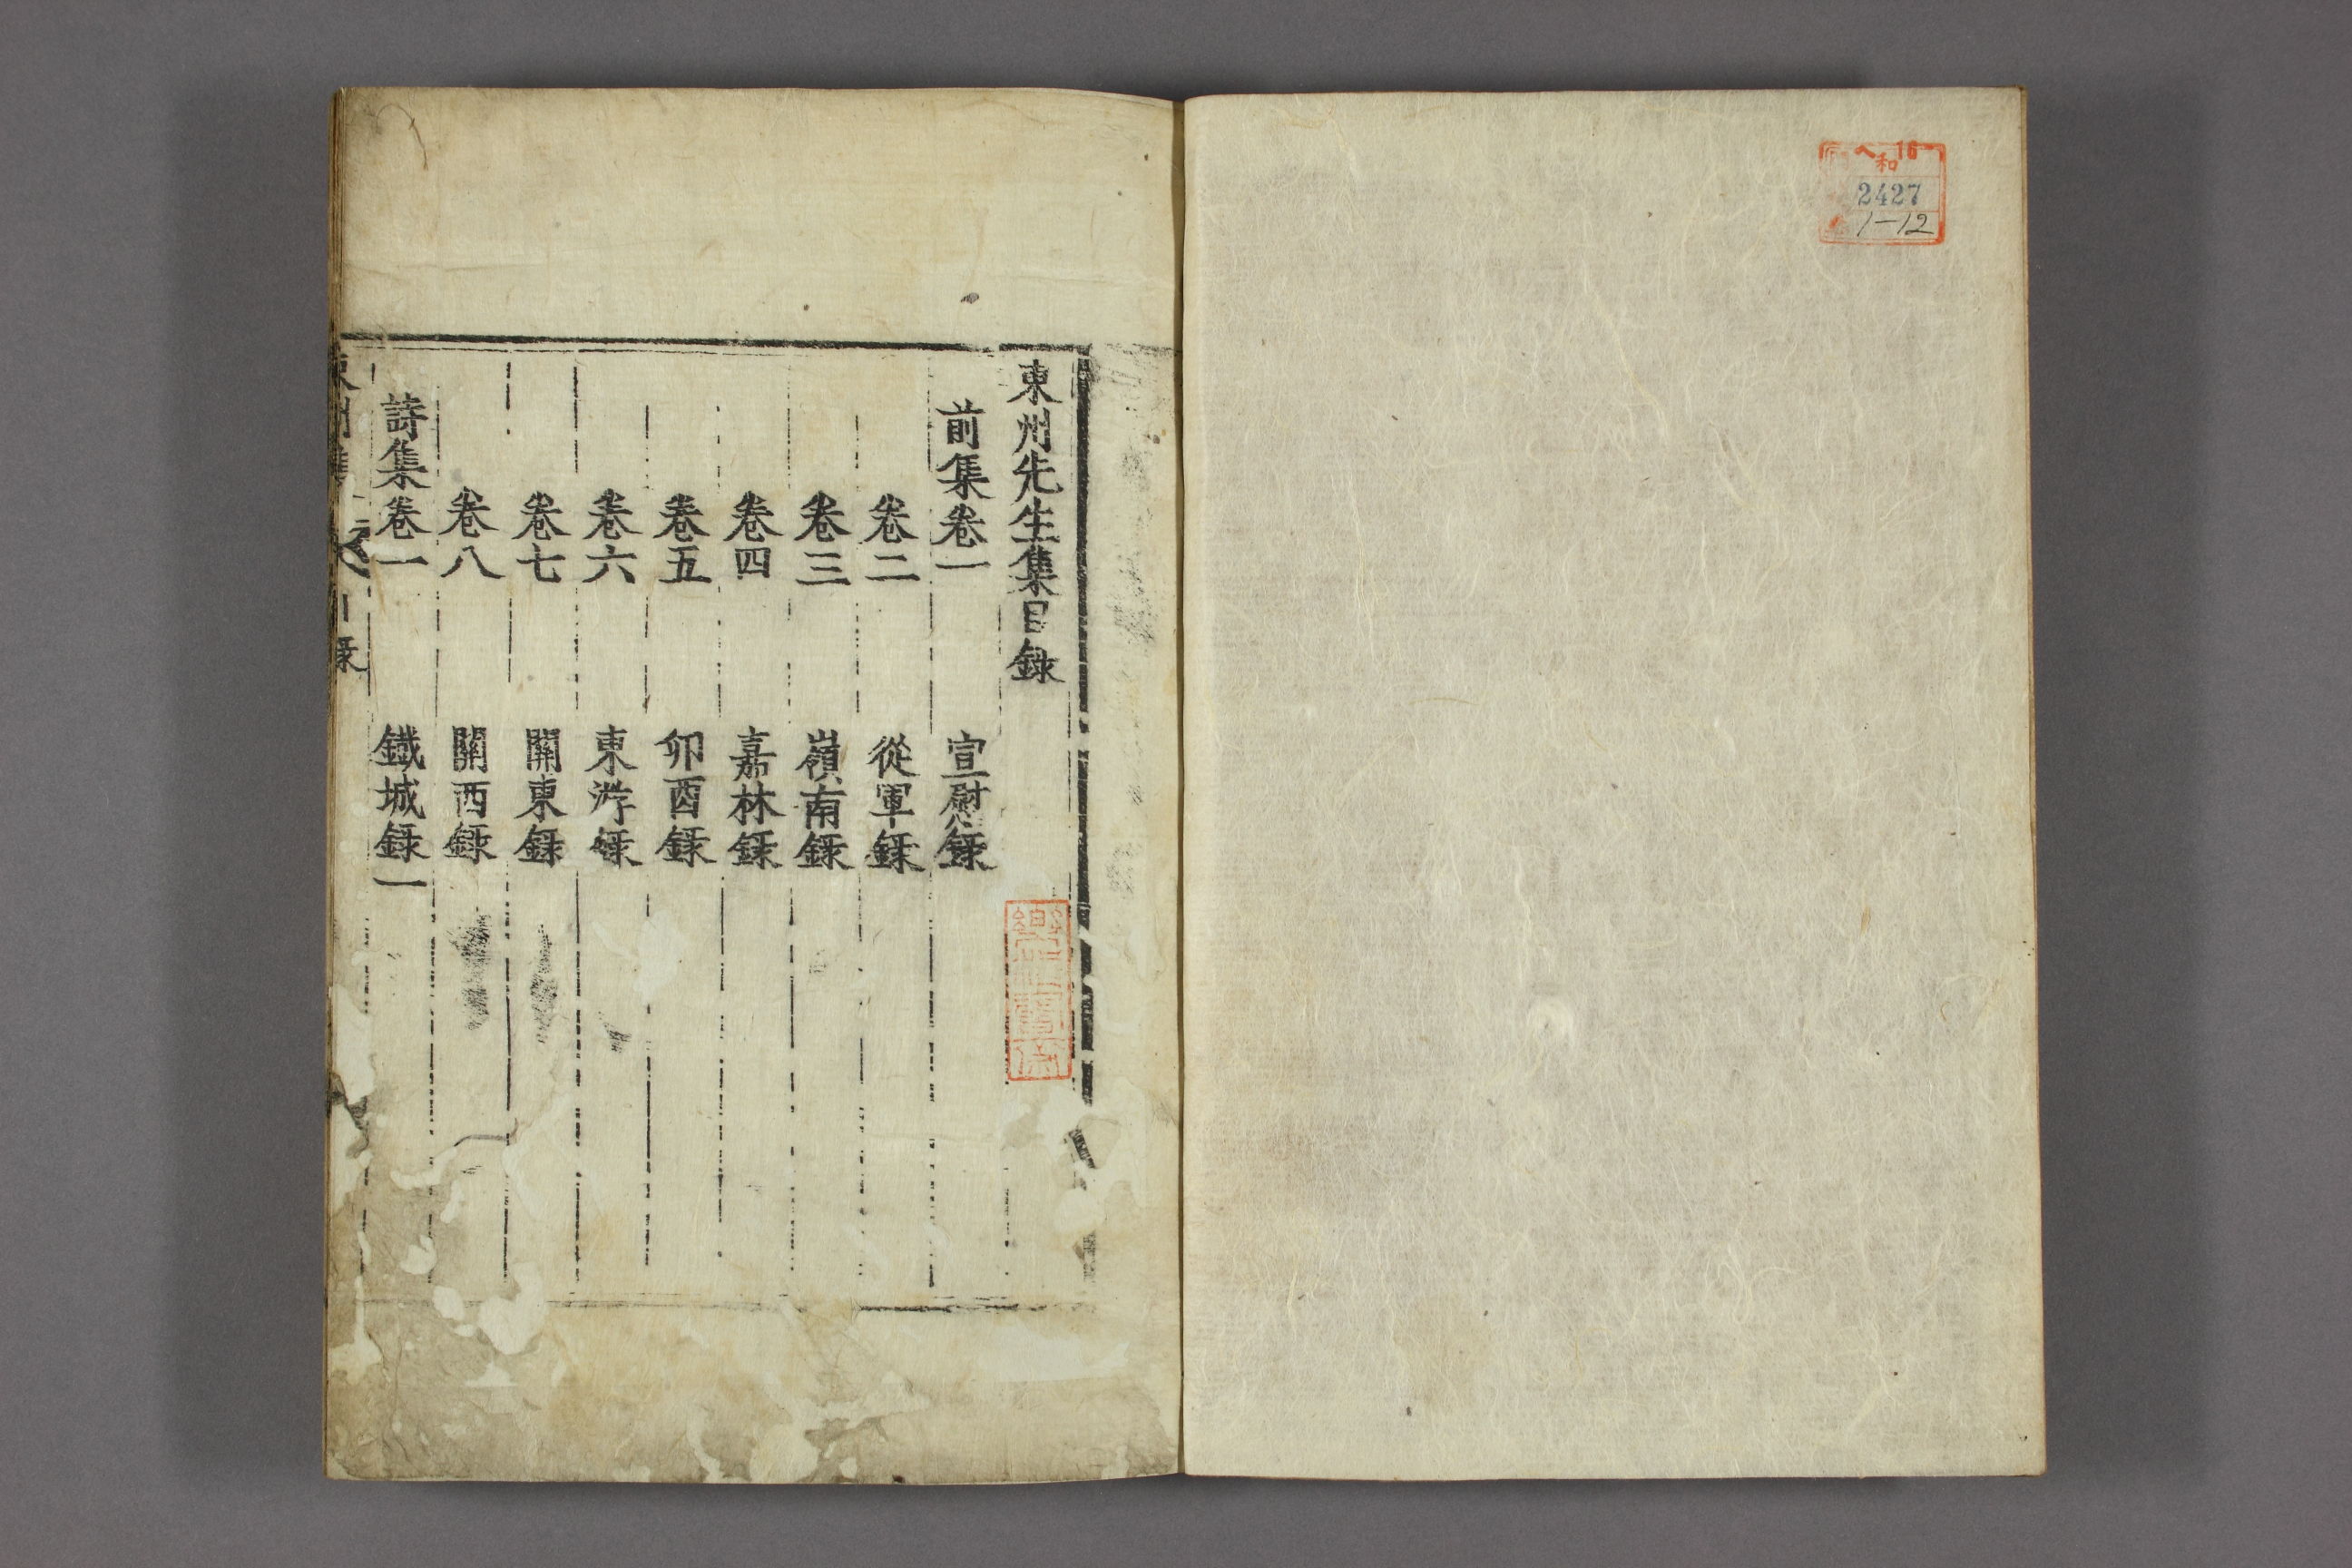 16
和
2427
1-12
東州先生集目錄
前集卷一 宣慰錄
卷二 從軍錄
卷三 嶺南錄
卷四 嘉林錄
卷五 卯酉錄
卷六 東游錄
卷七 關東錄
卷八 關西錄
詩集卷一 鐵城錄一